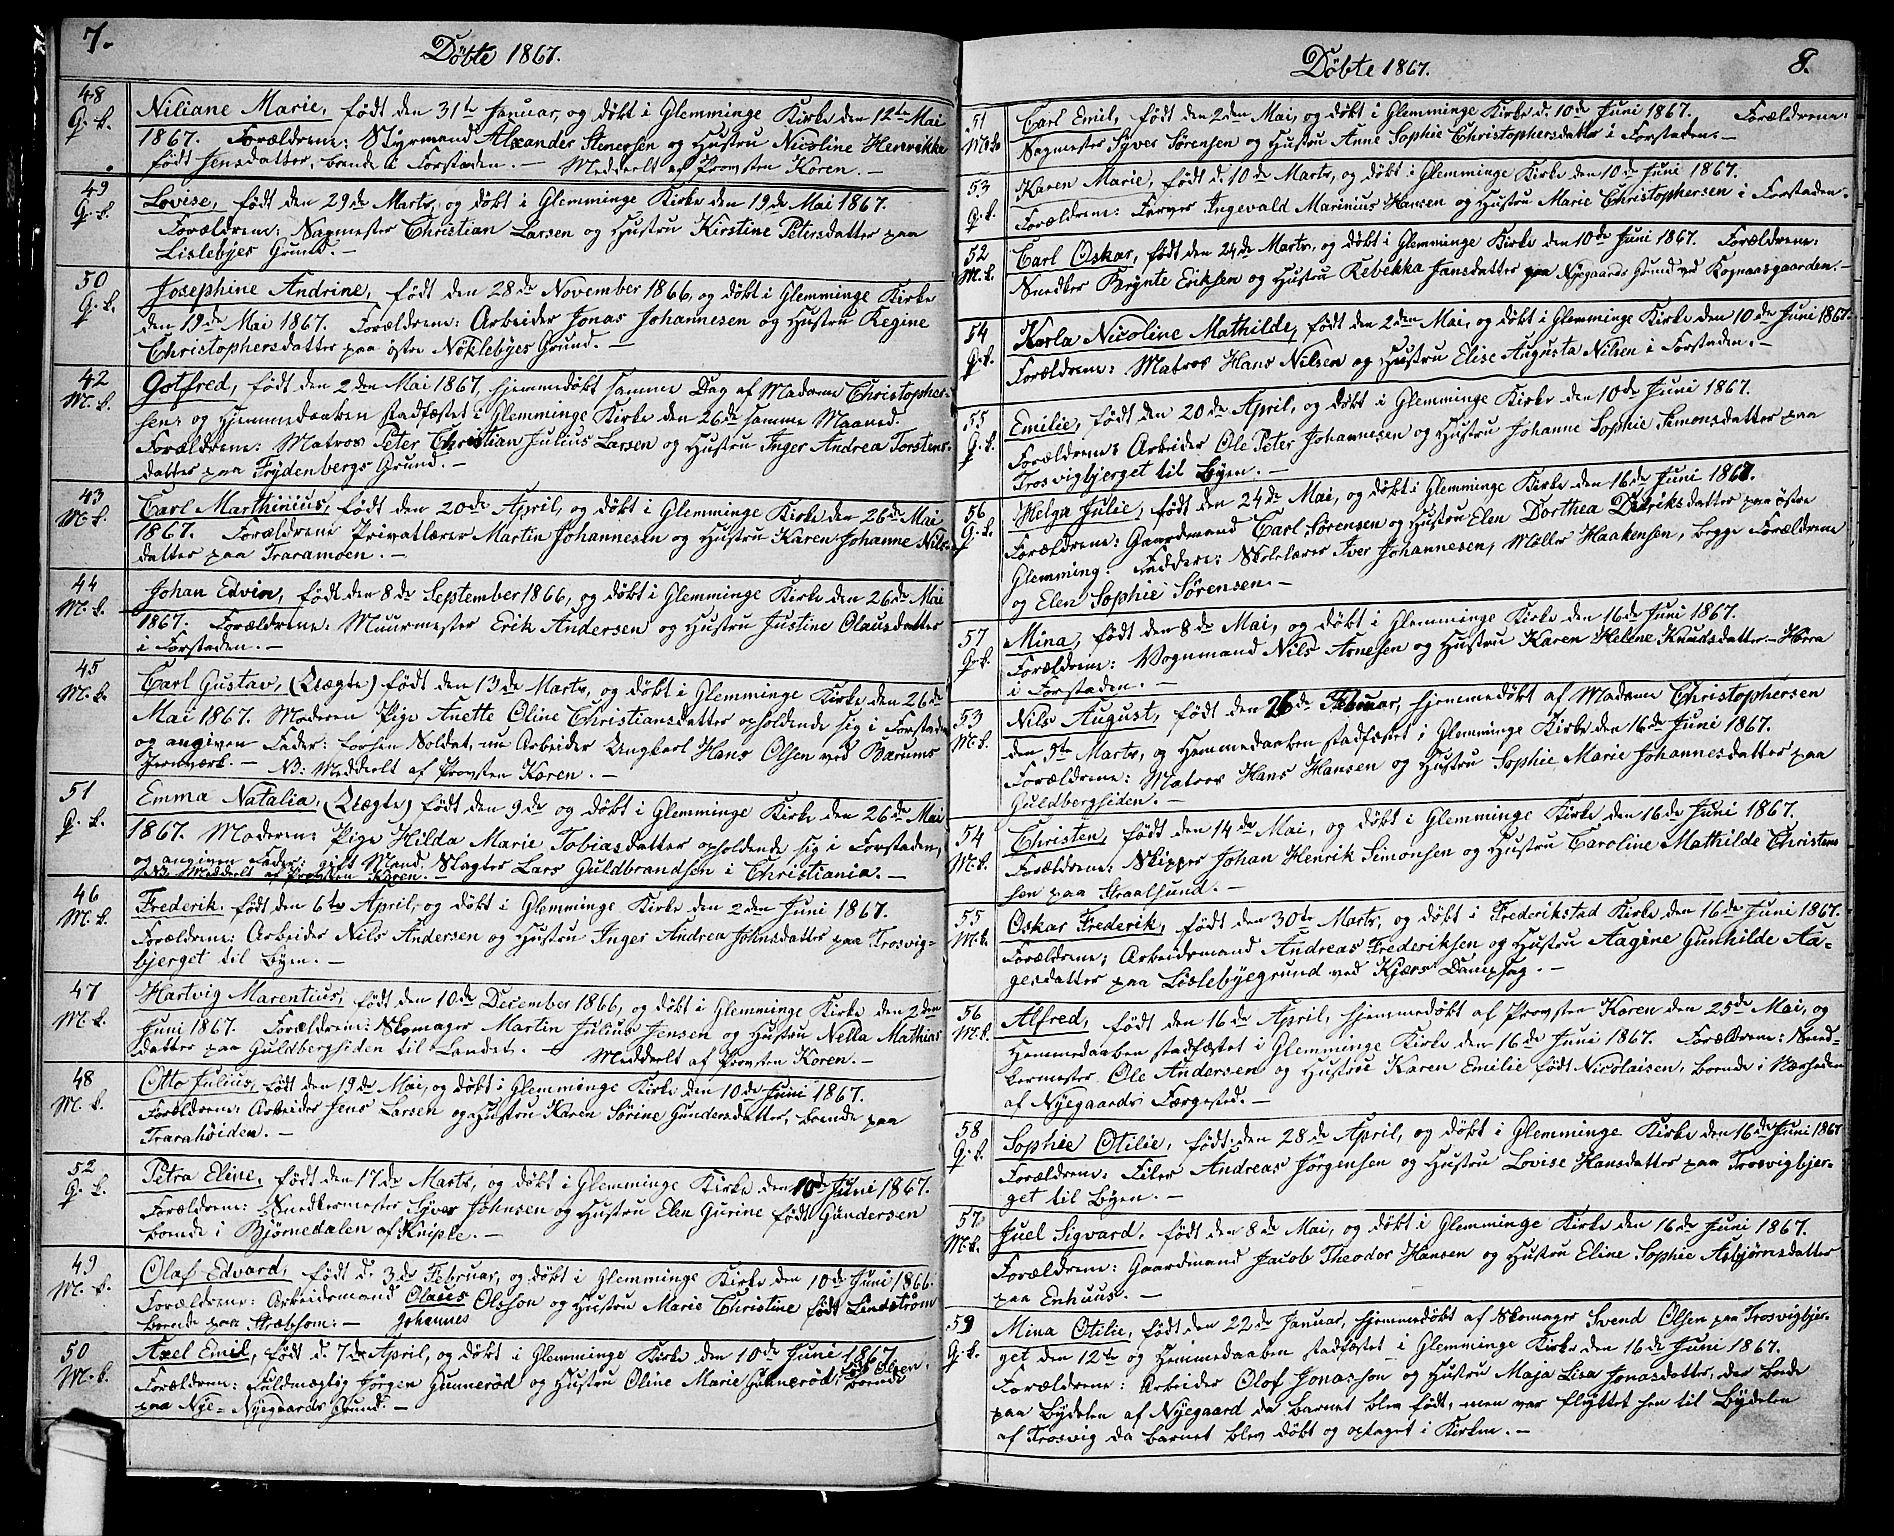 7.
Døbte 1867.
48 Niliane Marie, født den 31te Januar, og døbt i Glemminge Kirke den 12te Mai
G. b. 1867. Forældrene: Styrmand Alexander Stenersen og Hustru Nicoline Henrikke
født Jensdatter, boende i Forstaden. — Meddeelt af Provsten Koren. —
49 Lovise, født den 29de Marts, og døbt i Glemminge Kirke den 19de Mai 1867.
G. b. Forældrene: Sagmester Christian Larsen og Hustru Kirstine Petersdatter paa
Lislebyes Grund. —
50 Josephine Andrine, født den 28de November 1866, og døbt i Glemminge Kirke
G. b. den 19de Mai 1867. Forældrene: Arbeider Jonas Johannesen og Hustru Regine
Christophersdatter paa østre Nøklebyes Grund. —
42 Gotfred, født den 2den Mai 1867, hjemmedøbt samme Dag af Madame Christopher-
M. b. sen, og Hjemmedaaben stadfæstet i Glemminge Kirke den 26de samme Maaned.
Forældrene: Matros Peter Christian Julius Larsen og Hustru Inger Andrea Torstens-
datter paa Frydenbergs Grund. —
43 Carl Marthinius, født den 20de April, og døbt i Glemminge Kirke den 26de Mai
M. b. 1867. Forældrene Privatlærer Martin Johannesen og Hustru Karen Johanne Nils-
datter paa Traramoen. —
44 Johan Edvin, født den 8de September 1866, og døbt i Glemminge Kirke den 26de Mai
M. b. 1867. Forældrene: Muurmester Erik Andersen og Hustru Justine Olausdatter
i Forstaden. —
45 Carl Gustav, (Uægte) født den 13de Marts, og døbt i Glemminge Kirke den 26de
M. b. Mai 1867. Moderen Pige Anette Oline Christiansdatter opholdende sig i Forstaden
og angiven Fader: Soldat, nu Arbeider Ungkarl Hans Olsen ved Bærums
Jernværk. — NB: Meddeelt af Provsten Koren. —
51 Emma Natalia, (Uægte) født den 9de og døbt i Glemminge Kirke den 26de Mai
G. b. 1867. Moderen: Pige Hilda Marie Tobiasdatter opholdende sig i Forstaden,
og angiven Fader: gift Mand Slagter Lars Guldbrandsen i Christiania. —
NB: Meddeelt af Provsten Koren. —
46 Frederik, født den 6te April, og døbt i Glemminge Kirke den 2den Juni 1867.
M. b. Forældrene: Arbeider Nils Andersen og Hustru Inger Andrea Johnsdatter paa Trosvig-
bjerget til Byen. —
47 Hartvig Marentius, født den 10de December 1866, og døbt i Glemminge Kirke den 2den
M. b. Juni 1867. Forældrene: Skomager Martin Julius Jensen og Hustru Nella Mathias-
datter paa Guldbergsiden til Landet. — Meddeelt af Provsten Koren. —
48 Otto Julius, født den 19de Mai, og døbt i Glemminge Kirke den 10de Juni 1867.
M. b. Forældrene: Arbeider Jens Larsen og Hustru Karen Sørine Gundersdatter, boende paa
Trarahøiden. —
52 Petra Eline, født den 17de Marts, og døbt i Glemminge Kirke den 10de Juni 1867.
G. b. Forældrene: Snedkermester Syver Johnsen og Hustru Elen Gurine født Gundersen
boende i Bjørnedalen af Kniple. —
49 Olaf Edvard, født d. 3de Februar, og døbt i Glemminge Kirke den 10de Juni 1866.
M. b. Forældrene: Arbeidsmand Olaves Olsson og Hustru Marie Christine født Lindstrøm
boende paa — Johannes
50 Axel Emil, født d. 7de April, og døbt i Glemminge Kirke den 10de Juni 1867.
M. b. Forældrene: Fuldmægtig Jørgen Gunnerød og Hustru Oline Marie Gunnerød, født Olsen, boende
paa Nye-Nyegaards Grund. —
8.
Døbte 1867.
51 Carl Emil, født den 2den Mai, og døbt i Glemminge Kirke d. 10de Juni 1867. Forældrene:
Sagmester Syver Sørensen og Hustru Anne Sophie Christophersdatter i Forstaden. —
53 Karen Marie, født d. 10de Marts, og døbt i Glemminge Kirke den 10de Juni 1867.
G. b. Forældrene: Farver Ingevald Marinius Hansen og Hustru Marie Christophersen i Forstaden. —
52 Carl Oskar, født den 24de Marts, og døbt i Glemminge Kirke den 10de Juni 1867. Forældrene:
M. b. Snedker Brynte Eriksen og Hustru Rebekka Jansdatter paa Nyegaards Grund ved Rognaasgaarden. —
54 Karla Nicoline Mathilde, født den 2den Mai, og døbt i Glemminge Kirke den 10de Juni 1867.
G. b. Forældrene: Matros Hans Nilsen og Hustru Elise Augusta Nilsen i Forstaden. —
55 Emilie, født den 20de April, og døbt i Glemminge Kirke den 10de Juni 1867.
G. b. Forældrene: Arbeider Ole Peter Johannesen og Hustru Johanne Sophie Simonsdatter paa
Trosvigbjerget til Byen. —
56 Helga Julie, født den 24de Mai, og døbt i Glemminge Kirke den 16de Juni 1867.
G. b. Forældrene: Gaardmand Carl Sørensen og Hustru Elen Dorthea Didriksdatter paa østre
Glemming. Faddere: Skolelærer Iver Johannesen, Møller Haakensen, begge Forældrene
og Elen Sophie Sørensen. —
57 Mina, født den 8de Mai, og døbt i Glemminge Kirke den 16de Juni 1867.
G. b. Forældrene: Vognmand Nils Arnesen og Hustru Karen Helene Knudsdatter
i Forstaden. —
53 Nils August, født den 26de Februar, hjemmedøbt af Madame Christophersen
M. b. den 9te Marts, og Hjemmedaaben stadfæstet i Glemminge Kirke den 16de Juni 1867.
Forældrene: Matros Hans Hansen og Hustru Sophie Marie Johannesdatter paa
Guldbergsiden. —
54 Christen, født den 14de Mai, og døbt i Glemminge Kirke den 16de Juni 1867.
M. b. Forældrene: Skipper Johan Henrik Simonsen og Hustru Caroline Mathilde Christen-
sen paa Straalsund. —
55 Oskar Frederik, født den 30te Marts, og døbt i Frederikstad Kirke den 16de Juni 1867.
M. b. Forældrene: Arbeidsmand Andreas Frederiksen og Hustru Aagine Gunhilde Aa-
gesdatter paa Lislebyegrund ved Kjærs Dampsag. —
56 Alfred, født den 16de April, hjemmedøbt af Provsten Koren den 25de Mai, og
M. b. Hjemmedaaben stadfæstet i Glemminge Kirke den 16de Juni 1867. Forældrene: Sned-
kermester Ole Andersen og Hustru Karen Emilie født Nicolaisen, boende i Nærheden
af Nyegaards Færgested. —
58 Sophie Otilie, født den 28de April, og døbt i Glemminge Kirke den 16de Juni 1867.
G. b. Forældrene: Filer Andreas Jørgensen og Hustru Lovise Hansdatter paa Trosvigbjer-
get til Byen. —
57 Juel Sigvard, født den 8de Mai, og døbt i Glemminge Kirke den 16de Juni 1867.
M. b. Forældrene: Gaardmand Jacob Theodor Hansen og Hustru Eline Sophie Asbjørnsdatter
paa Enhuus. —
59 Mina Otilie, født den 22de Januar, hjemmedøbt af Skomager Svend Olsen paa Trosvigbjer-
G. b. get den 12te og Hjemmedaaben stadfæstet i Glemminge Kirke den 16de Juni 1867.
Forældrene: Arbeider Olof Jonasson og Hustru Maja Lisa Jonasdatter, der boede
paa Bydelen af Nyegaard da Barnet blev født, men var flyttet hen til Bydelen
af Trosvig da Barnet blev døbt og optaget i Kirken. —